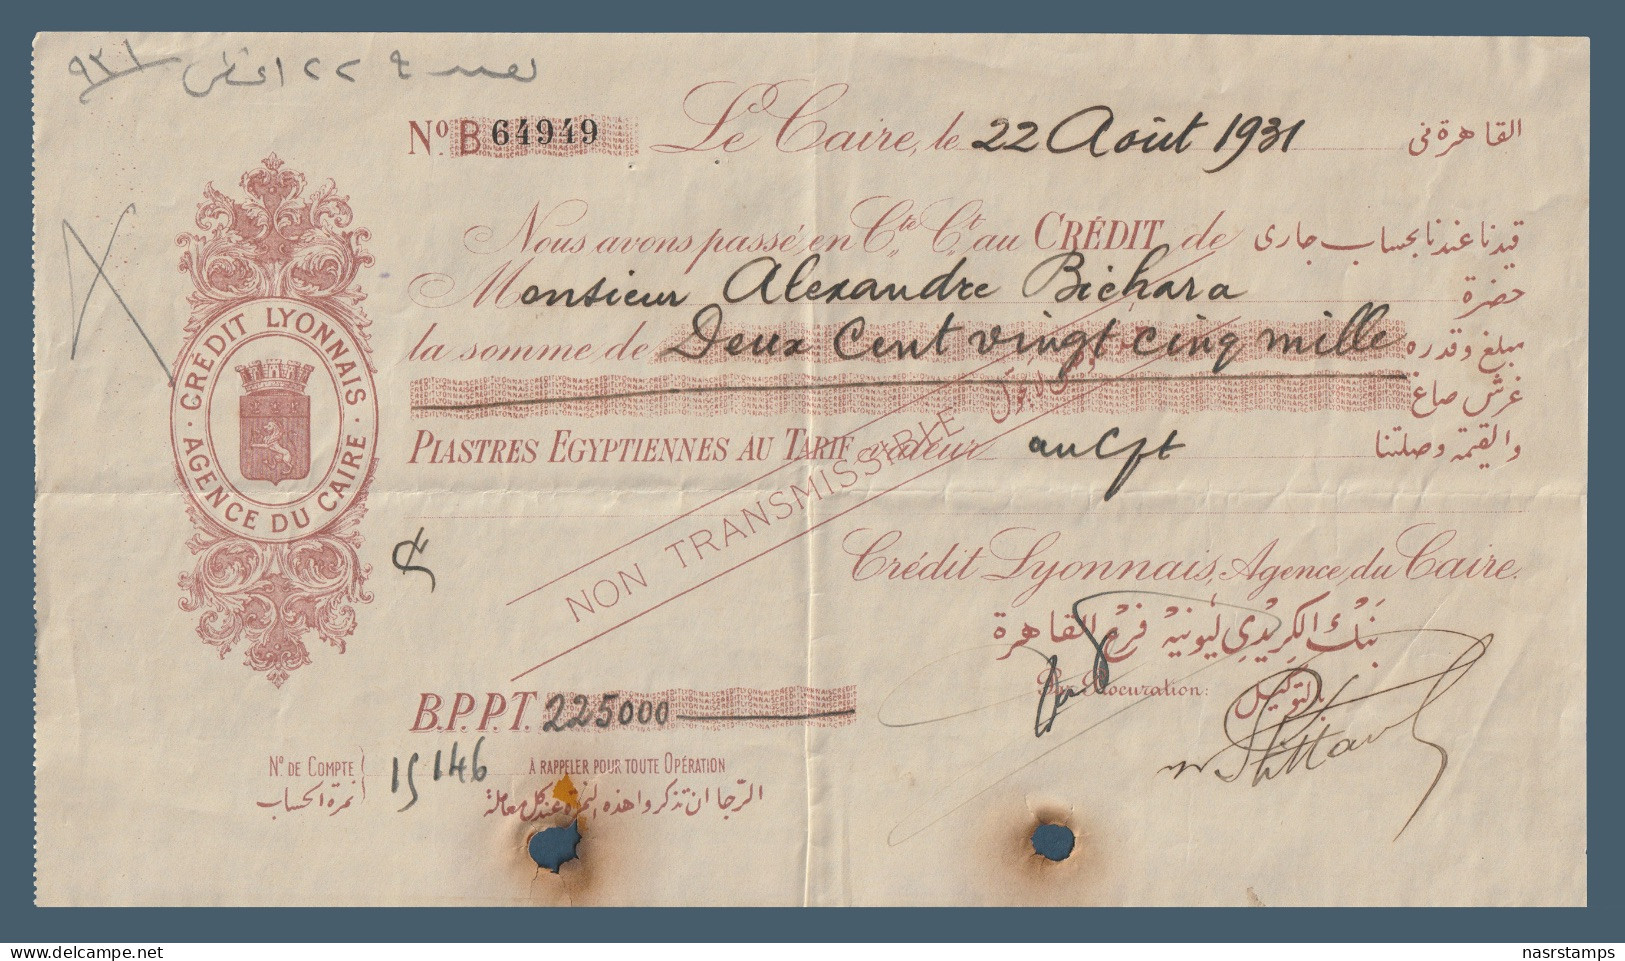 ٩٣١ ٢٢
Nº B 64949 Le Caire, le 22 Août 1931 القاهرة فى
Nous avons passé en Cte Ct au CRÉDIT de قيدنا عندنا بحساب جارى
Monsieur Alexandre Bichara حضرة
la somme de Deux Cent vingt cinq mille مبلغ وقدره
غرش صاغ
PIASTRES EGYPTIENNES AU TARIF valeur والقيمة وصلتنا
NON TRANSMISSIBLE
CRÉDIT LYONNAIS
· AGENCE DU CAIRE ·
Crédit Lyonnais, Agence du Caire.
بنك الكريدي ليونيه فرع القاهرة
Par Procuration: بالتوكيل
B.P.P.T. 225000
Nº DE COMPTE 15146 À RAPPELER POUR TOUTE OPÉRATION
نمرة الحساب الرجا ان تذكروا هذه النمرة عند كل معاملة
nasrstamps